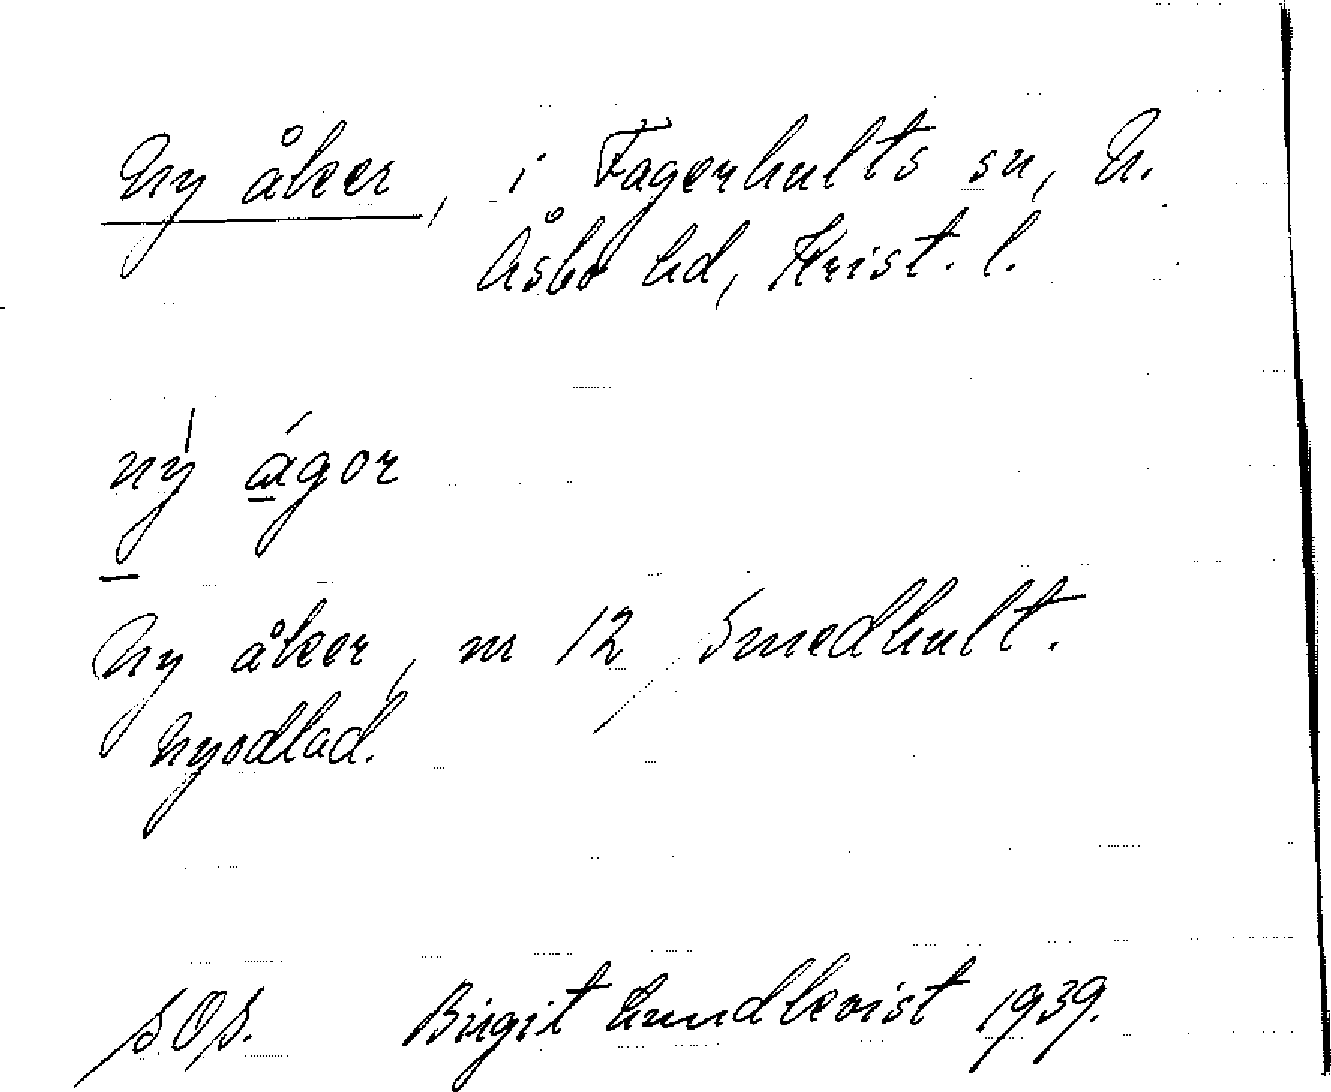 Ny åker, i Fagerhults sn, N.
Åsbo hd, Krist. l.
ný ágor
Ny åker, nr 12 Smedhult.
Nyodlad.
SOS. Birgit Lundkvist 1939.